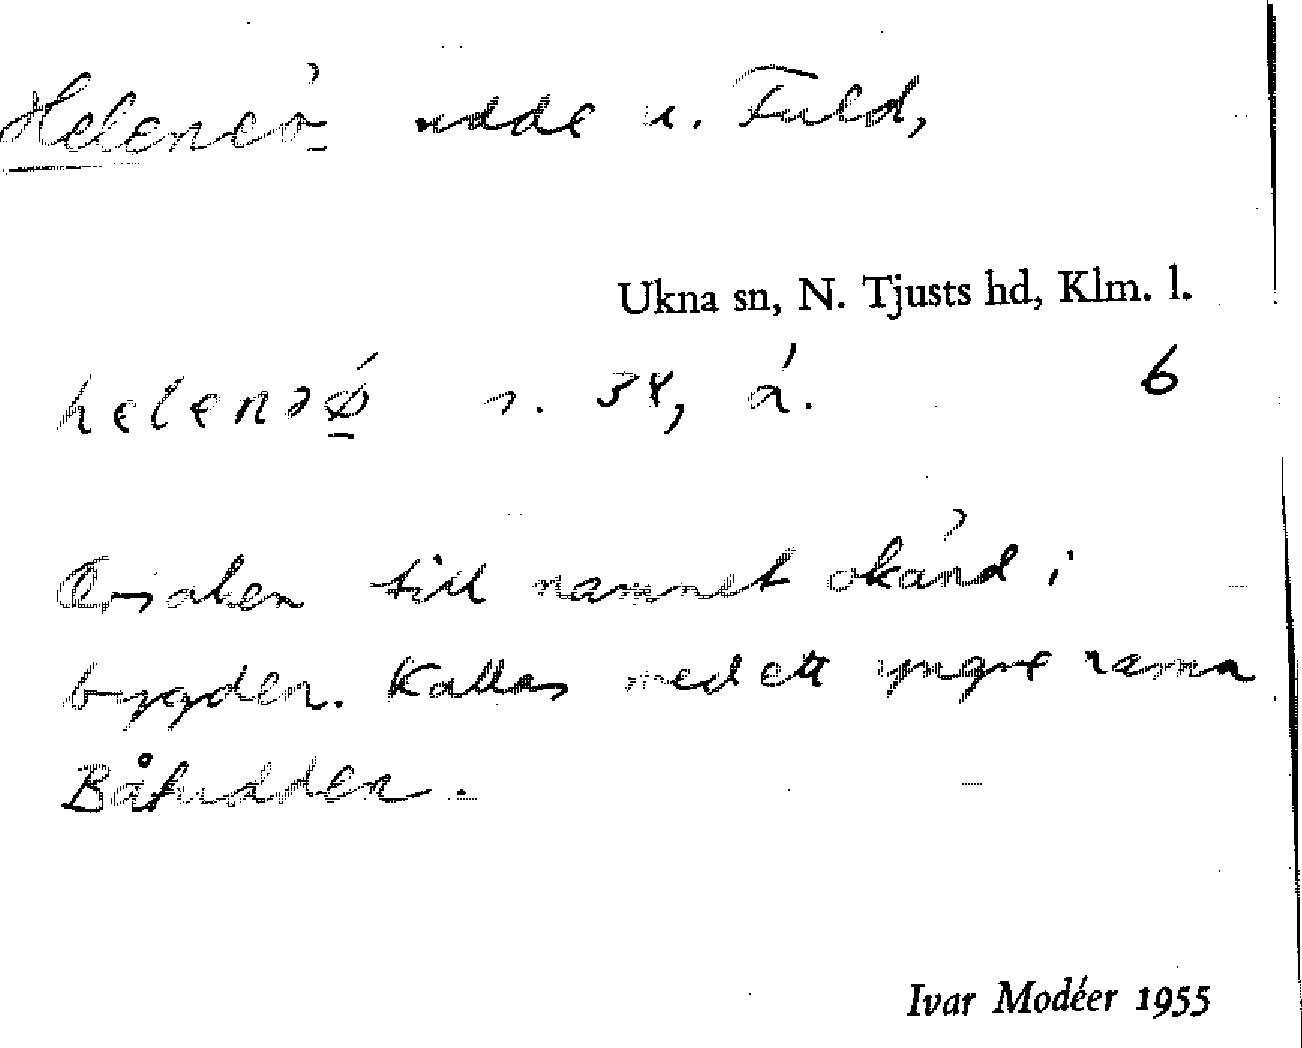 Heleneö udde u. Fuld,
Ukna sn, N. Tjusts hd, Klm. l.
helenəø s. 34, á. 6
Orsaken till namnet okänd i
bygden. Kallas med ett yngre namn
Båtudden.
Ivar Modéer 1955